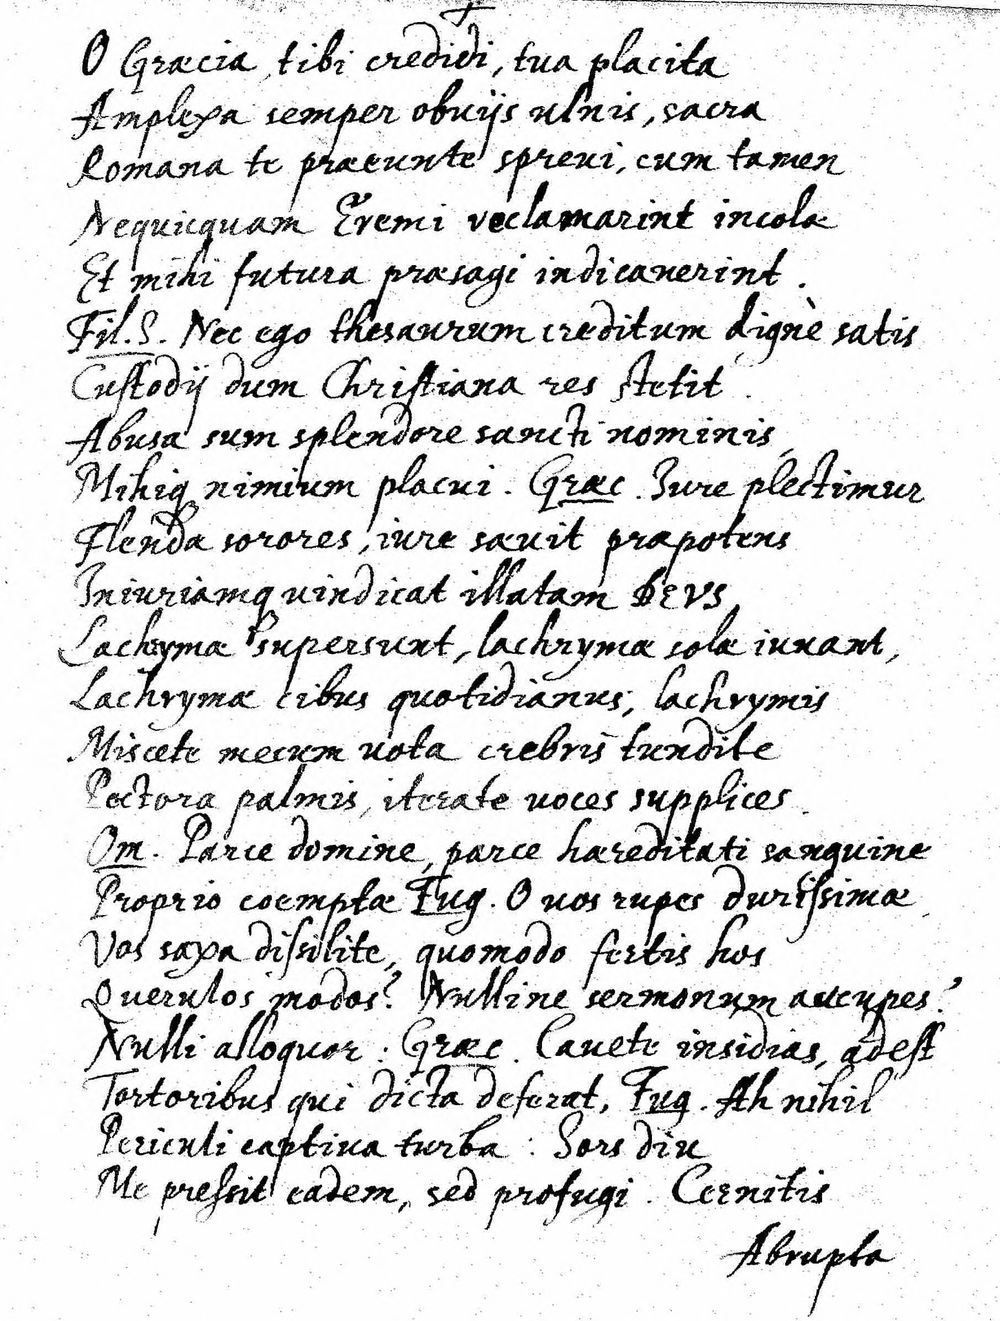 O Græcia tibi credidi, tua placita
Amplexa semper obuijs ulnis, sacra
Romana te præeunte spreui, cum tamen
Nequicquam Eremi reclamarint incolæ
Et mihi futura præsagi indicauerint.
Fil.S. Nec ego thesaurum creditum dignè satis
Custodij dum Christiana res stetit.
Abusa sum splendore sancti nominis,
Mihiq nimium placui. Græc. Iure plectimur
Flenda sorores, iure sæuit præpotens
Iniuriamq uindicat illatam DEVS,
Lachrymæ supersunt, lachrymæ solæ iuuant,
Lachrymæ cibus quotidianus, lachrymis
Miscete mecum uota crebris tundite
Pectora palmis, iterate uoces supplices.
Om. Parce domine, parce hæreditati sanguine
Proprio coemptæ Fug. O uos rupes durissimæ
Vos saxa dissilite, quomodo fertis hos
Querulos modos? Nulline sermonum aucupes?
Nulli alloquor: Græc. Cauete insidias, adest
Tortoribus qui dicta deferat, Fug. Ah nihil
Periculi captiua turba: Sors diu
Me pressit eadem, sed profugi. Cernitis
Abrupta